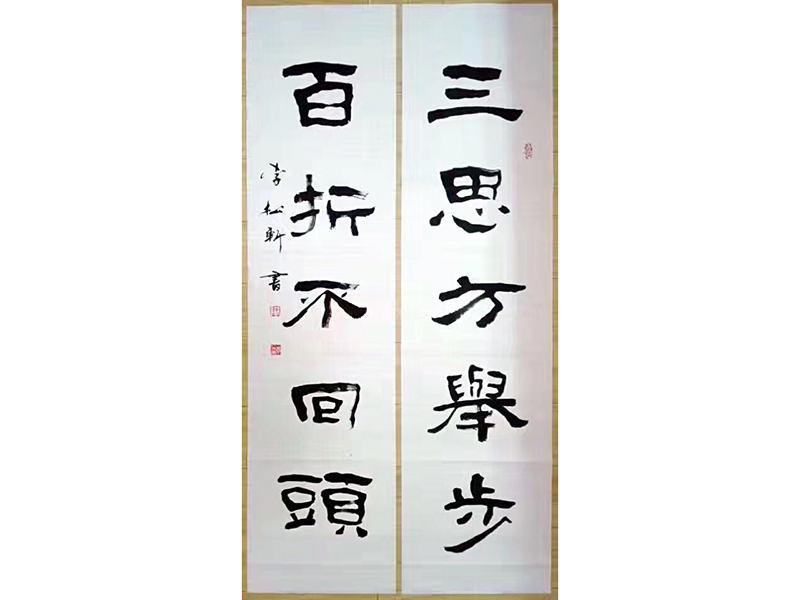 三思方舉步
百折不回頭
李松軒書